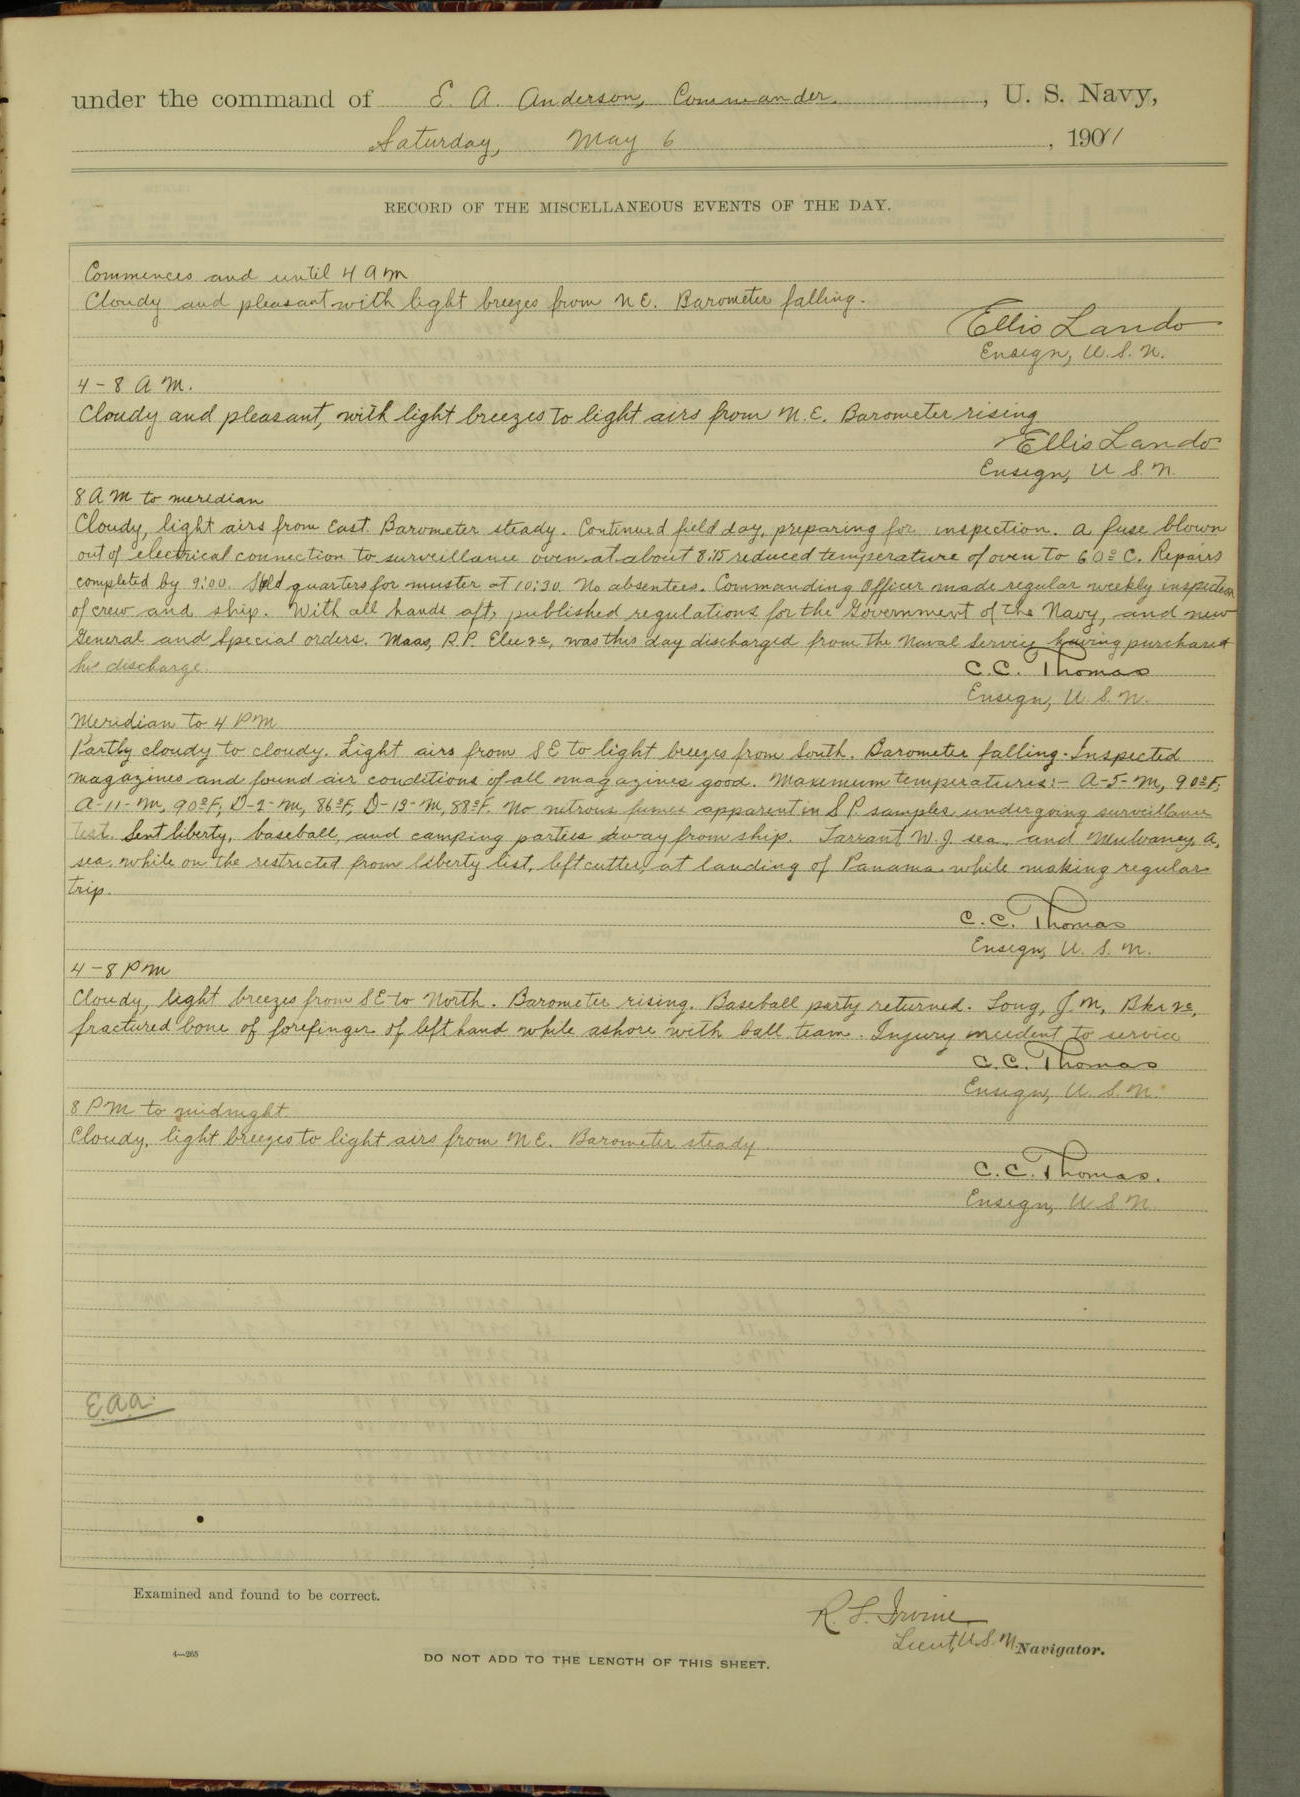 under the command of E. A. Anderson, Commander, U. S. Navy,
Saturday, May 6, 1911
RECORD OF THE MISCELLANEOUS EVENTS OF THE DAY.
Commences and until 4 A M
Cloudy and pleasant with light breezes from N E. Barometer falling.
Ellis Lando
Ensign, U. S. N.
4 - 8 A M.
Cloudy and pleasant, with light breezes to light airs from N. E. Barometer rising
Ellis Lando
Ensign, U S. N.
8 A M to meridian
Cloudy, light airs from East. Barometer steady. Continued field day, preparing for inspection. A fuse blown
out of electrical connection to surveillance oven at about 8:15 reduced temperature of oven to 60° C. Repairs
completed by 9:00. Held quarters for muster at 10:30. No absentees. Commanding Officer made regular weekly inspection
of crew and ship. With all hands aft, published regulations for the Government of the Navy, and new
General and Special orders. Maas, R. P. Elec 2c, was this day discharged from the Naval Service, having purchased
his discharge.
C. C. Thomas
Ensign, U. S. N.
Meridian to 4 P M
Partly cloudy to cloudy. Light airs from S E to light breezes from South. Barometer falling. Inspected
magazines and found air conditions of all magazines good. Maximum temperatures:- A-5-M, 90°F;
A-11-M, 90°F; D-2-M, 86°F, D-12-M, 88°F. No nitrous fumes apparent in S P. samples undergoing surveillance
test. Sent liberty, baseball, and camping parties away from ship. Tarrant, W. J. sea. and Mulvaney, A,
sea. while on the restricted from liberty list, left cutter, at landing of Panama while making regular
trip.
C. C. Thomas
Ensign, U. S. N.
4 - 8 P M
Cloudy, light breezes from S E to North. Barometer rising. Baseball party returned. Long, J. M, Bkr 2c,
fractured bone of forefinger of left hand while ashore with ball team. Injury incident to service
C. C. Thomas
Ensign, U. S. N.
8 P M to midnight
Cloudy, light breezes to light airs from N E. Barometer steady
C. C. Thomas.
Ensign, U S N.
E.A.A.
Examined and found to be correct.
R. L. Irvine
Lieut, U. S. N. Navigator.
4—265
DO NOT ADD TO THE LENGTH OF THIS SHEET.